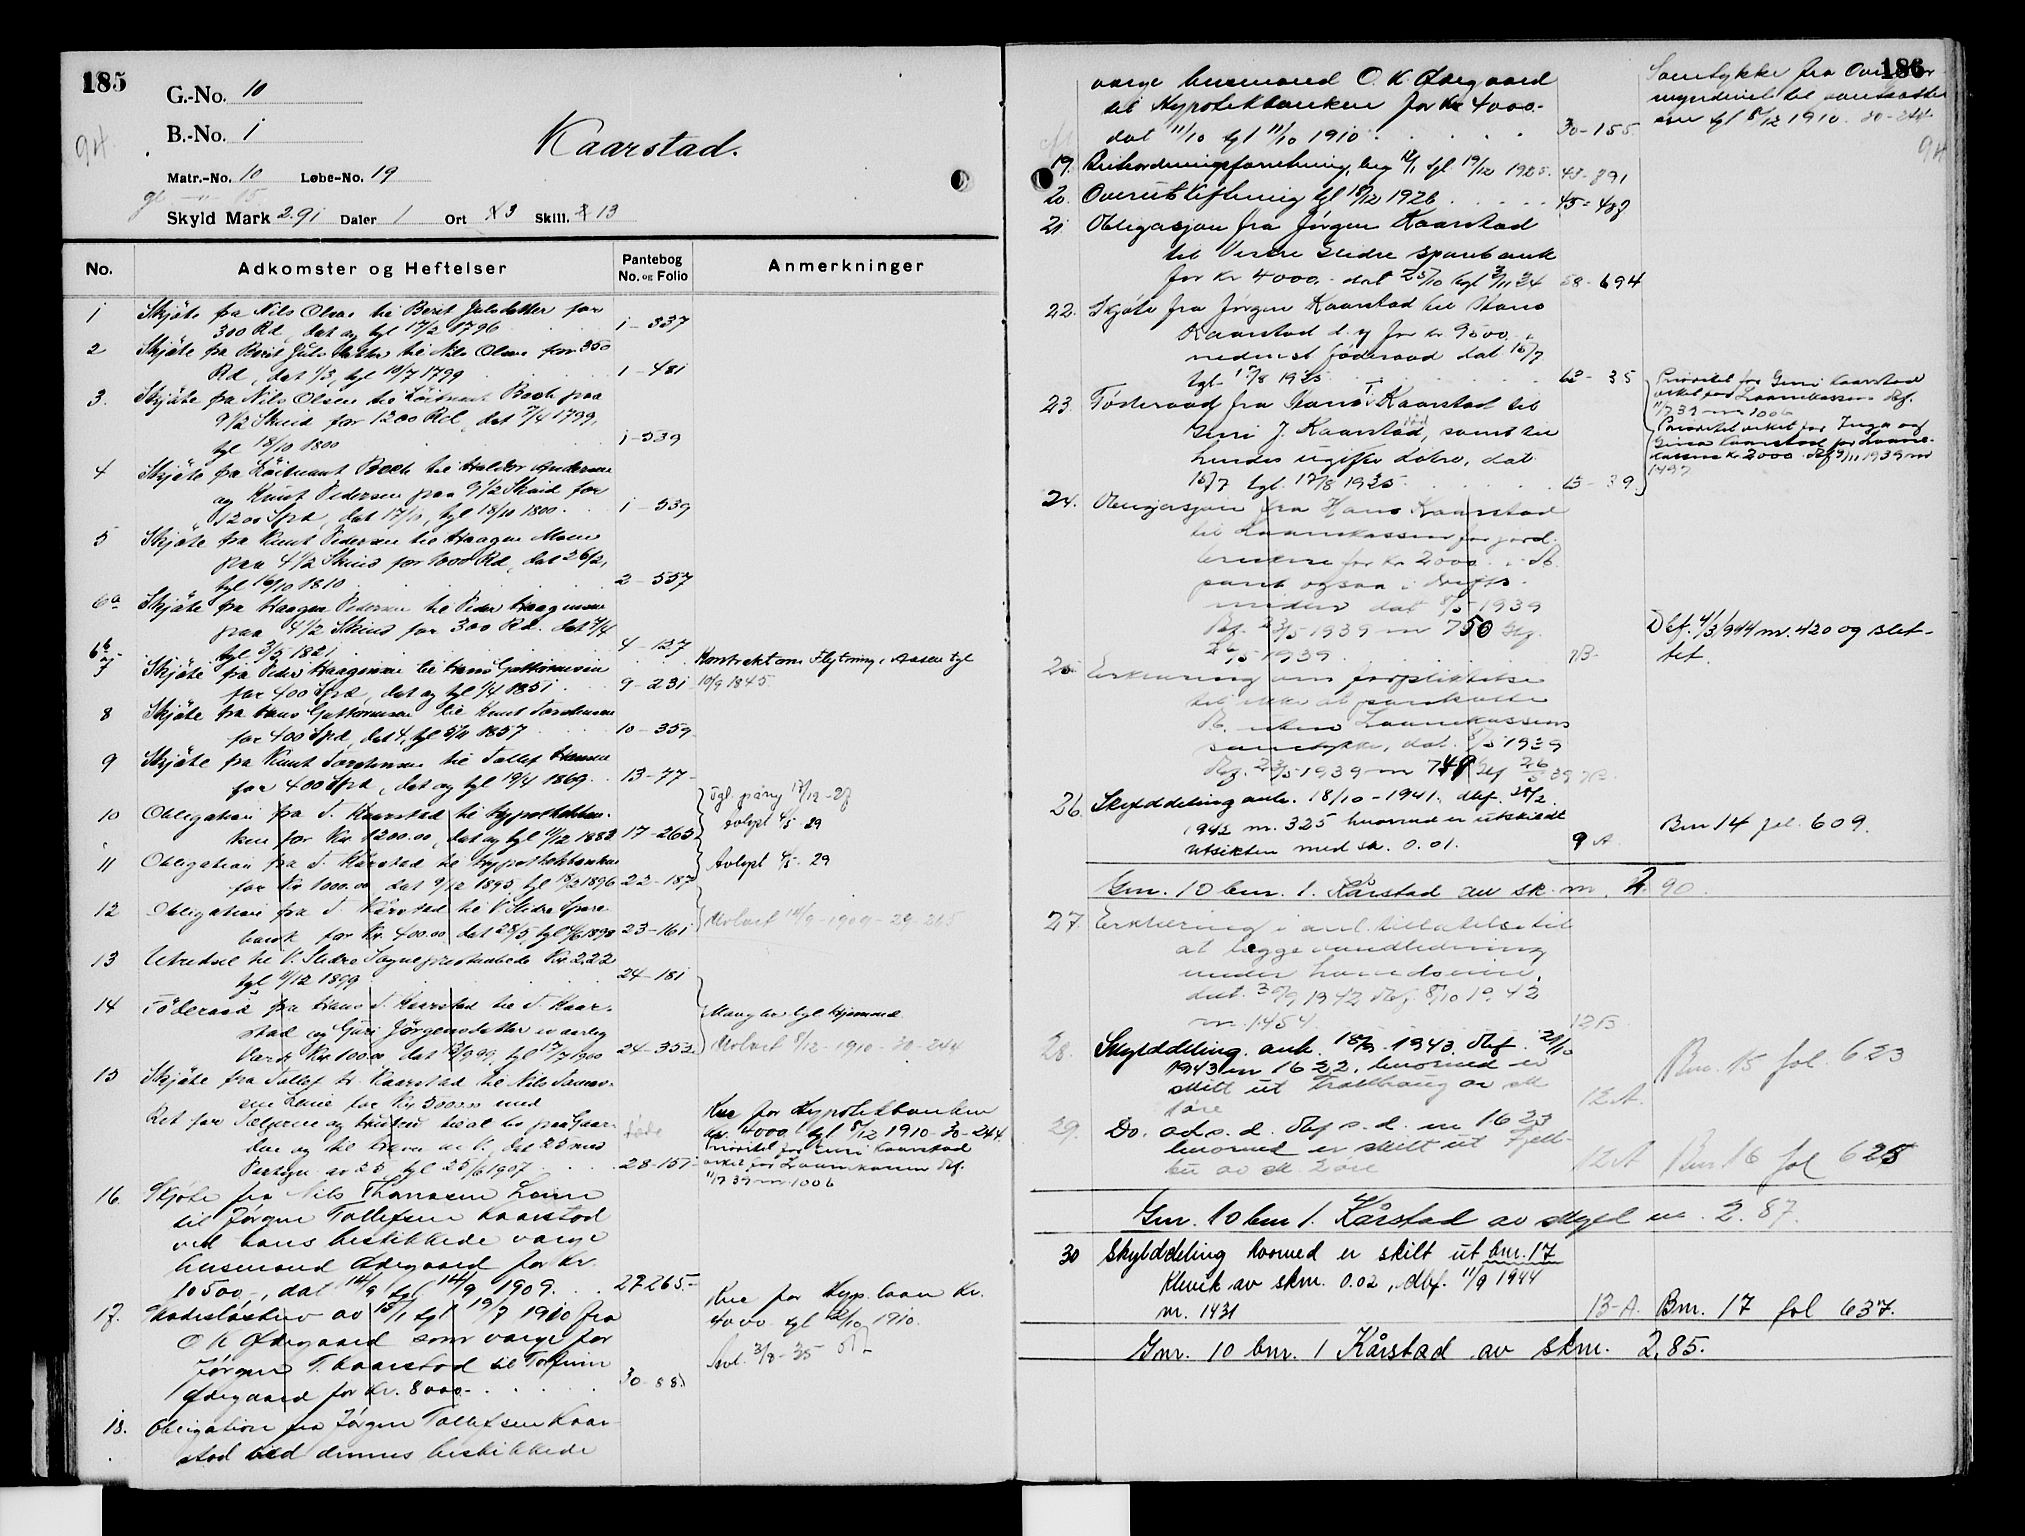 185
G.-No. 10
B.-No. 1
94.
Kaarstad.
Matr.-No. 10 Løbe-No. 19
Skyld Mark 2.91 Daler 1 Ort 3 Skill. 13
No. Adkomster og Heftelser Pantebog No. og Folio Anmerkninger
1 Skjøte fra Nils Olsen til Berit Julsdatter for
300 Rd, dat og tgl 17/2 1796 1-337
2 Skjøte fra Berit Julsdatter til Nils Olsen for 350
Rd, dat 1/3, tgl 10/7 1799 1-481
3. Skjøte fra Nils Olsen til Löitnant Boch paa
9 1/2 Skind for 1200 Rd, dat 7/4 1799,
tgl 18/10 1800 1-539
4 Skjøte fra Löitnant Boch til Haldor Andersen
og Knut Pedersen paa 9 1/2 Skind for
1200 Spd, dat 17/10, tgl 18/10 1800. 1-539
5 Skjøte fra Knut Pedersen til Haagen Moen
paa 4 1/2 Skind for 1000 Rd, dat 26/2,
tgl 16/10 1810 2-557
6a Skjøte fra Haagen Pedersen til Peder Haagensen
paa 4 1/2 Skind for 300 Rd. dat 7/4
tgl 3/5 1821 4-127
6b Kontrakt om Flytning i Aasen tgl
10/9 1845
7 Skjøte fra Peder Haagensen til Hans Guttormsen
for 400 Spd, dat og tgl 1/4 1851 9-231
8 Skjøte fra Hans Guttormsen til Knut Tordensen
for 400 Spd, dat 4, tgl 5/11 1857 10-359
9 Skjøte fra Knut Tordensen til Tollef Hansen
for 400 Spd, dat og tgl 19/4 1869. 13-77
10 Obligation fra T. Kaarstad til Hypothekban-
ken for Kr 1200.00, dat og tgl 11/12 1883 17-265
Tgl. paany 17/12-27
Avlyst 4/5 29
11 Obligation fra T. Kårstad til Hypothekbanken
for Kr 1000.00, dat 9/12 1895, tgl 18/2 1896 22-187
Avlyst 4/5 29
12 Obligation fra T. Kårstad til V. Slidre Spare-
bank for Kr. 400.00 dat 28/5, tgl 4/6 1898 23-161
Avlæst 14/9-1909-29-265
13 Utredsel til V. Slidre Sogneprestembede Kr 2.22
tgl 11/12 1899 24-181
14 Föderaad fra Hans T. Kaarstad til T. Kaar-
stad og Guri Jørgensdatter av aarlig
Værdi Kr 100.00 dat 13/9 99, tgl 17/7 1900 24-353.
Mangler tgl hjemmel
Avlæst 8/12-1910-30-244
15 Skjøte fra Tollef H. Kaarstad til Nils Thomas-
sen Leine for Kr 5000.00 med
Ret for Sælgeren og hustru til at bo paa Gaar-
den og til Kr 4000 tgl 8/12 1910-30-244
Prioritet for Guri Kaarstad
veket for Laanekassen dbf.
11/7 39 nr. 1006
28-157
16. Skjøte fra Nils Thomassen Leine
til Jørgen Tollefsen Kaarstad
ved hans beskikkede værge
husmand Ødegaard for Kr.
10500-, dat 14/9 tgl 14/9 1909. 27-265-
17. Skadesløsbrev av 15/1 tgl 19/7 1910 fra
O K Ødegaard som værge for
Jørgen T. Kaarstad til Torfinn
Ødegaard for Kr. 8000- 30-88
Avl. 3/8-35
Vike for Hyp. laan Kr.
4000 tgl 12/10 1910.
18. Obligation fra Jørgen Tollefsen Kaar-
stad ved dennes beskikkede
186
94
værge husmand O. K. Ødegaard
til Hypotekbanken for Kr 4000-
dat 11/10 tgl 11/10 1910 30-155
Samtykke fra Overfor-
mynderiet til pantsættel-
sen tgl 8/12 1910. 30-244
19. Beitesordningsforretning, beg 12/1 tgl 19/12 1925. 43-891
20. Overutskiftning tgl 18/12 1926 45-487
21. Obligasjon fra Jørgen Kaarstad
til Vestre Slidre sparebank
for kr 4000,- dat 25/10 tgl 3/11 34 58-694
22. Skjøte fra Jørgen Kaarstad til Hans
Kaarstad d. y for kr. 9500.-,
medregnet føderaad dat 15/7
tgl. 17/8 1935 62-35
23. Føderaad fra Hans Kaarstad til
Guri J. Kaarstad, samt til
hendes ugifte døtre, dat
15/7 tgl. 17/8 1935 13-39
Prioritet for Guri Kaarstad
veket for Laanekassen dbf.
11/7 39 nr 1006
Prioritet veket for Inga og
Gina Kaarstad for Laane-
kassen kr 2000 dbf 9/11 1939 nr
1497
24. Obligasjon fra Hans Kaarstad
til Laanekassen for jord-
brukere for kr 2000 1. pr.
pant ogsaa i drifts-
midler dat 8/5 1939
Dbf. 23/5 1939 nr 750 tgl.
26/5 1939 7B-
Dbf. 4/3 1944 nr. 420 og slet-
tet.
25. Erklæring om forpliktelse
til ikke at pantsætte
uten Laanekassens
samtykke, dat. 8/5 1939
Dbf. 23/5 1939 nr 749 tgl 26/5 39 7B
26. Skylddeling avh. 18/10-1941. dbf. 28/2.
1942 nr. 325 hvorved er utskildt
Utsikten med sk. 0.01. 9 A. Bnr 14 fol. 609.
Gnr. 10 bnr. 1. Kårstad av sk. m. 2.90.
27 Erklæring i anl. tillatelse til
at legge vandledning
under hovedveien,
dat. 30/9 1942 dbf. 8/10 1942
nr. 1454. 12B.
28. Skylddeling avh. 18/9 1943. dbf. 21/10
1943 nr 1622, hvorved er
skilt ut Trollhaug av sk
1 øre 12 A. Bnr. 15 fol. 623
29. Do. avh. s. d. dbf s. d. nr 1623
hvorved er skilt ut Fjell-
bu av sk. 2 øre 12 A Bnr 16 fol 625
Gnr. 10 bnr 1. Kårstad av skyld m. 2.87.
30 Skylddeling hvorved er skilt ut bnr. 17
Klevik av skm. 0.02, dbf. 11/9 1944
nr. 1431 13-A. Bnr. 17 fol 637.
Gnr. 10 bnr. 1 Kårstad av skm. 2,85.